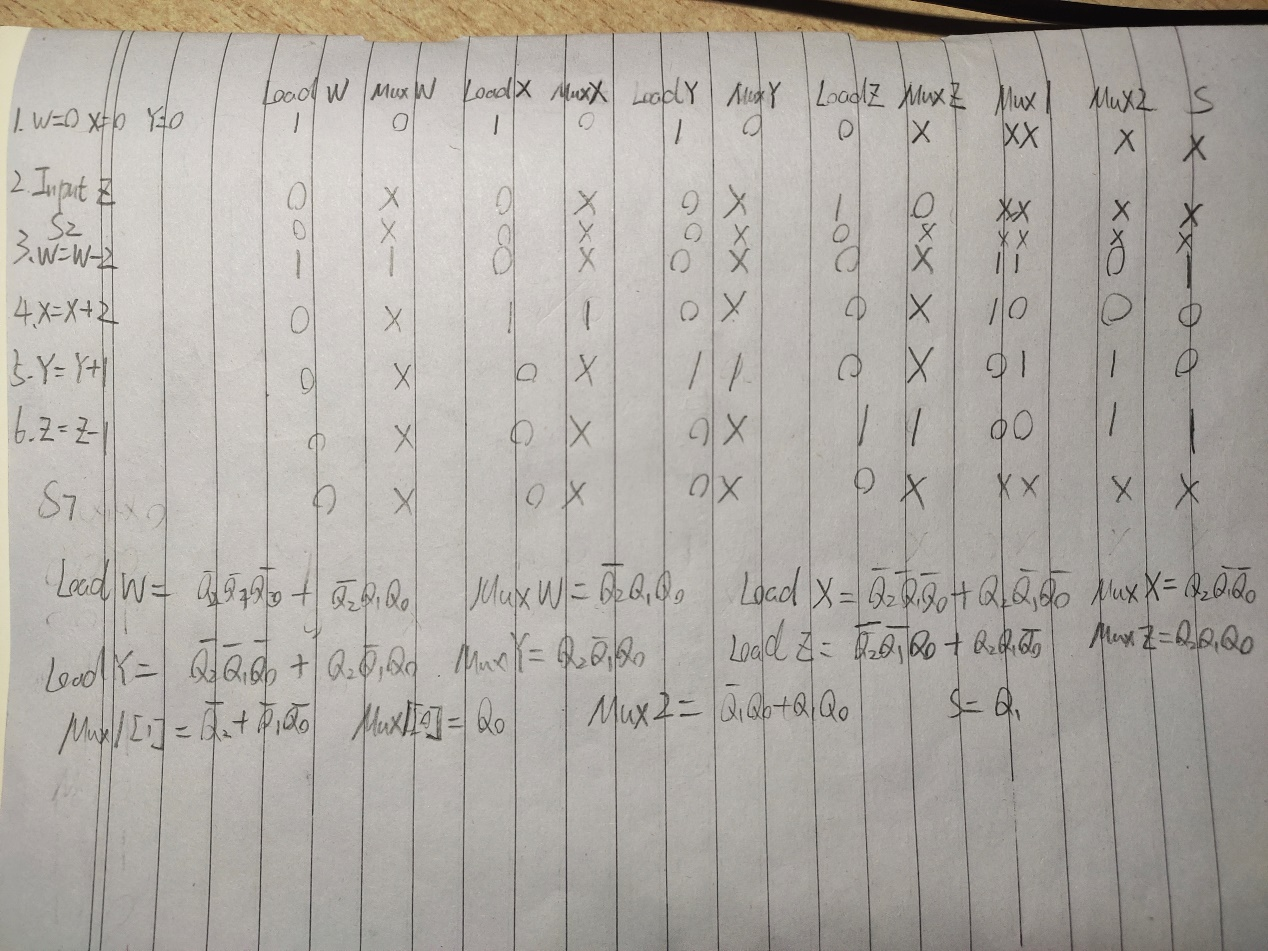 Load W Mux W Load X Mux X Load Y Mux Y Load Z Mux Z Mux 1 Mux 2 S
1. W=0 X=0 Y=0 1 0 1 0 1 0 0 X XX X X
2. Input Z 0 X 0 X 0 X 1 0 XX X X
S2 0 X 0 X 0 X 0 X XX X X
3. W=W-2 1 1 0 X 0 X 0 X 11 0 1
4. X=X+2 0 X 1 1 0 X 0 X 10 0 0
5. Y=Y+1 0 X 0 X 1 1 0 X 01 1 0
6. Z=Z-1 0 X 0 X 0 X 1 1 00 1 1
S7 0 X 0 X 0 X 0 X XX X X
Load W = Q̄₂Q̄₁Q̄₀ + Q̄₂Q₁Q₀ Mux W = Q̄₂Q₁Q₀ Load X = Q̄₂Q̄₁Q̄₀ + Q₂Q̄₁Q̄₀ Mux X = Q₂Q̄₁Q̄₀
Load Y = Q̄₂Q̄₁Q̄₀ + Q₂Q̄₁Q₀ Mux Y = Q₂Q̄₁Q₀ Load Z = Q̄₂Q̄₁Q₀ + Q₂Q₁Q̄₀ Mux Z = Q₂Q₁Q₀
Mux1[1] = Q̄₂ + Q̄₁Q̄₀ Mux1[0] = Q₀ Mux 2 = Q̄₁Q₀ + Q₁Q̄₀ S = Q₁